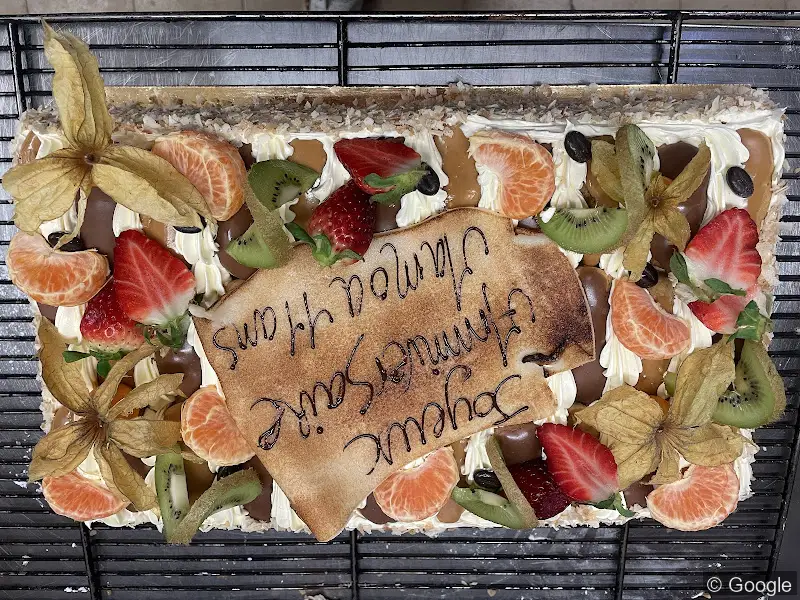 Joyeux
Anniversaire
Mamoa 11ans
© Google